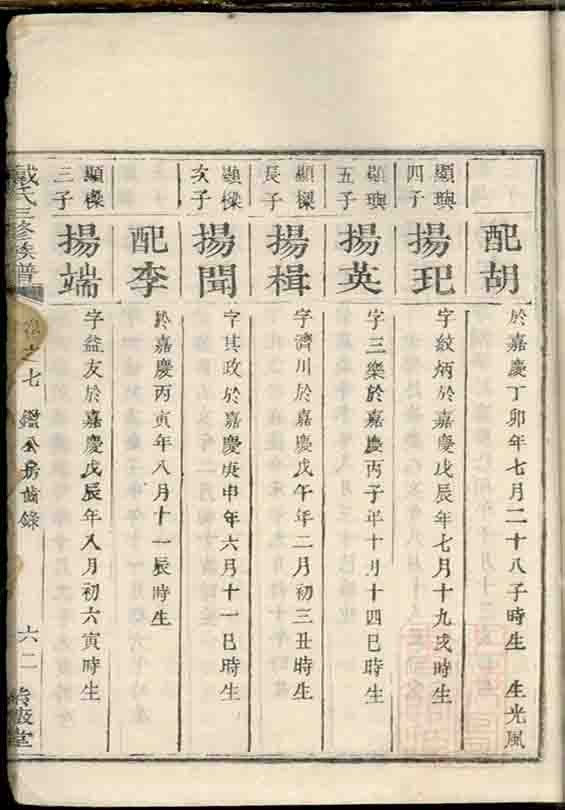 配胡
於嘉慶丁卯年七月二十八子時生 生光風
顯璵
四子
揚玘
字紋炳於嘉慶戊辰年七月十九戌時生
顯璵
五子
揚英
字三樂於嘉慶丙子年十月十四巳時生
顯樑
長子
揚楫
字濟川於嘉慶戊午年二月初三丑時生
顯樑
次子
揚聞
字其政於嘉慶庚申年六月十一巳時生
配李
於嘉慶丙寅年八月十一辰時生
顯樑
三子
揚端
字益友於嘉慶戊辰年八月初六寅時生
戴氏三修族譜
卷之七 鑑公房齒錄
六二
堂